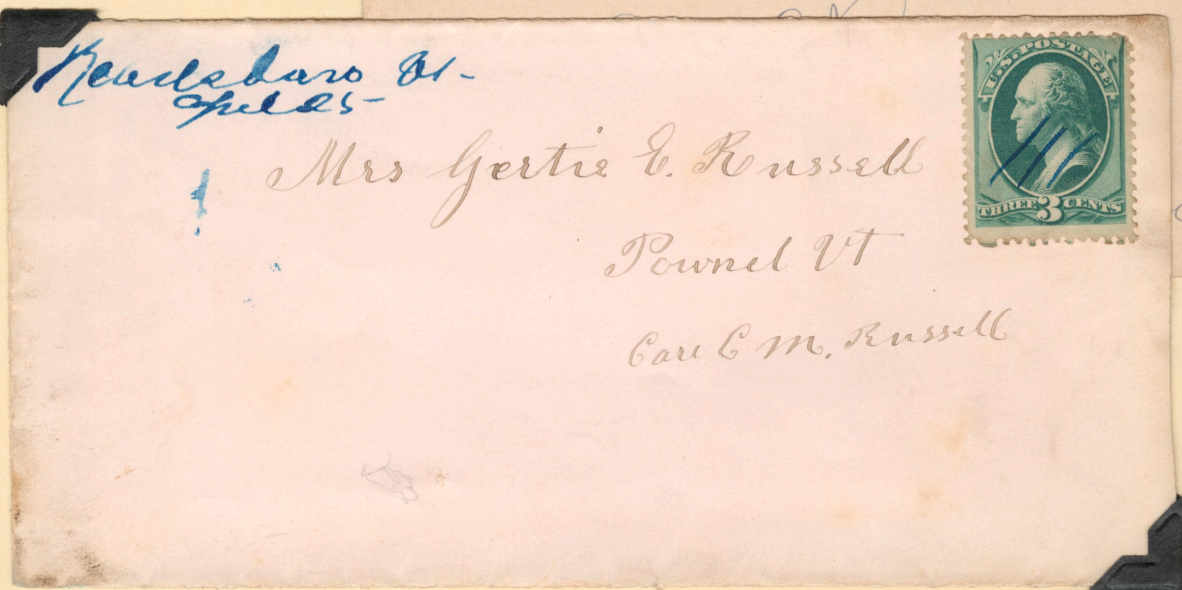 Readsboro Vt-
April 25-
U.S. POSTAGE
THREE 3 CENTS
Mrs Gertie E. Russell
Pownel Vt
Care C M. Russell